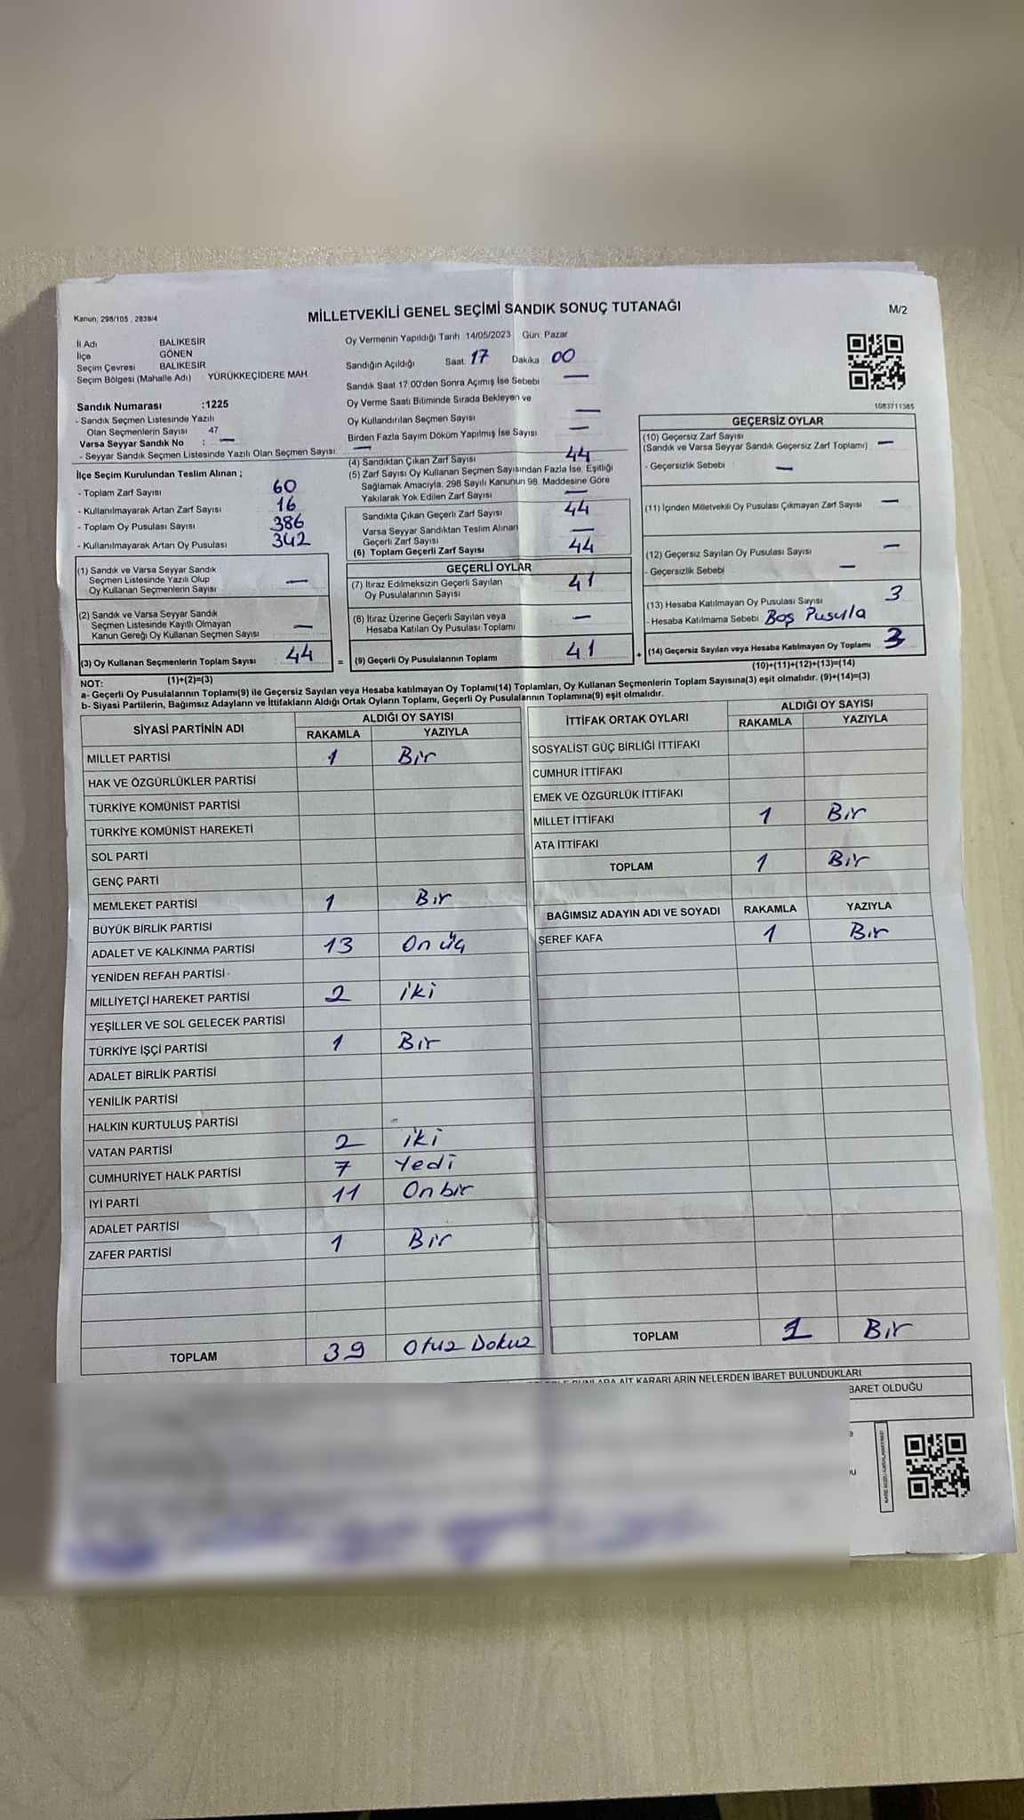 Kanun: 298/105, 2839/4
MİLLETVEKİLİ GENEL SEÇİMİ SANDIK SONUÇ TUTANAĞI
M/2
İl Adı BALIKESİR
İlçe GÖNEN
Seçim Çevresi BALIKESİR
Seçim Bölgesi (Mahalle Adı) YÜRÜKKEÇİDERE MAH
Sandık Numarası :1225
- Sandık Seçmen Listesinde Yazılı
Olan Seçmenlerin Sayısı 47
Varsa Seyyar Sandık No : —
- Seyyar Sandık Seçmen Listesinde Yazılı Olan Seçmen Sayısı —
İlçe Seçim Kurulundan Teslim Alınan ;
- Toplam Zarf Sayısı 60
- Kullanılmayarak Artan Zarf Sayısı 16
- Toplam Oy Pusulası Sayısı 386
- Kullanılmayarak Artan Oy Pusulası 342
(1) Sandık ve Varsa Seyyar Sandık
Seçmen Listesinde Yazılı Olup
Oy Kullanan Seçmenlerin Sayısı —
(2) Sandık ve Varsa Seyyar Sandık
Seçmen Listesinde Kayıtlı Olmayan
Kanun Gereği Oy Kullanan Seçmen Sayısı —
(3) Oy Kullanan Seçmenlerin Toplam Sayısı 44
(1)+(2)=(3)
Oy Vermenin Yapıldığı Tarih 14/05/2023 Gün: Pazar
Sandığın Açıldığı Saat 17 Dakika 00
Sandık Saat 17 00'den Sonra Açımış İse Sebebi —
Oy Verme Saati Bitiminde Sırada Bekleyen ve
Oy Kullandırılan Seçmen Sayısı —
Birden Fazla Sayım Döküm Yapılmış İse Sayısı —
(4) Sandıktan Çıkan Zarf Sayısı 44
(5) Zarf Sayısı Oy Kullanan Seçmen Sayısından Fazla İse, Eşitliği
Sağlamak Amacıyla, 298 Sayılı Kanunun 98. Maddesine Göre
Yakılarak Yok Edilen Zarf Sayısı —
Sandıkta Çıkan Geçerli Zarf Sayısı 44
Varsa Seyyar Sandıktan Teslim Alınan
Geçerli Zarf Sayısı —
(6) Toplam Geçerli Zarf Sayısı 44
GEÇERLİ OYLAR
(7) İtiraz Edilmeksizin Geçerli Sayılan
Oy Pusulalarının Sayısı 41
(8) İtiraz Üzerine Geçerli Sayılan veya
Hesaba Katılan Oy Pusulası Toplamı —
= (9) Geçerli Oy Pusulalarının Toplamı 41 +
1083711385
GEÇERSİZ OYLAR
(10) Geçersiz Zarf Sayısı
(Sandık ve Varsa Seyyar Sandık Geçersiz Zarf Toplamı) —
- Geçersizlik Sebebi —
(11) İçinden Milletvekili Oy Pusulası Çıkmayan Zarf Sayısı —
(12) Geçersiz Sayılan Oy Pusulası Sayısı —
- Geçersizlik Sebebi —
(13) Hesaba Katılmayan Oy Pusulası Sayısı 3
- Hesaba Katılmama Sebebi Boş Pusula
(14) Geçersiz Sayılan veya Hesaba Katılmayan Oy Toplamı 3
(10)+(11)+(12)+(13)=(14)
NOT:
a- Geçerli Oy Pusulalarının Toplamı(9) ile Geçersiz Sayılan veya Hesaba katılmayan Oy Toplamı(14) Toplamları, Oy Kullanan Seçmenlerin Toplam Sayısına(3) eşit olmalıdır. (9)+(14)=(3)
b- Siyasi Partilerin, Bağımsız Adayların ve İttifakların Aldığı Ortak Oyların Toplamı, Geçerli Oy Pusulalarının Toplamına(9) eşit olmalıdır.
SİYASİ PARTİNİN ADI ALDIĞI OY SAYISI
RAKAMLA YAZIYLA
MİLLET PARTİSİ 1 Bir
HAK VE ÖZGÜRLÜKLER PARTİSİ
TÜRKİYE KOMÜNİST PARTİSİ
TÜRKİYE KOMÜNİST HAREKETİ
SOL PARTİ
GENÇ PARTİ
MEMLEKET PARTİSİ 1 Bir
BÜYÜK BİRLİK PARTİSİ
ADALET VE KALKINMA PARTİSİ 13 On üç
YENİDEN REFAH PARTİSİ
MİLLİYETÇİ HAREKET PARTİSİ 2 iki
YEŞİLLER VE SOL GELECEK PARTİSİ
TÜRKİYE İŞÇİ PARTİSİ 1 Bir
ADALET BİRLİK PARTİSİ
YENİLİK PARTİSİ
HALKIN KURTULUŞ PARTİSİ
VATAN PARTİSİ 2 iki
CUMHURİYET HALK PARTİSİ 7 Yedi
İYİ PARTİ 11 Onbir
ADALET PARTİSİ
ZAFER PARTİSİ 1 Bir
TOPLAM 39 Otuz Dokuz
İTTİFAK ORTAK OYLARI ALDIĞI OY SAYISI
RAKAMLA YAZIYLA
SOSYALİST GÜÇ BİRLİĞİ İTTİFAKI
CUMHUR İTTİFAKI
EMEK VE ÖZGÜRLÜK İTTİFAKI
MİLLET İTTİFAKI 1 Bir
ATA İTTİFAKI
TOPLAM 1 Bir
BAĞIMSIZ ADAYIN ADI VE SOYADI RAKAMLA YAZIYLA
ŞEREF KAFA 1 Bir
TOPLAM 1 Bir
AİT KARARLARIN NELERDEN İBARET BULUNDUKLARI
BARET OLDUĞU